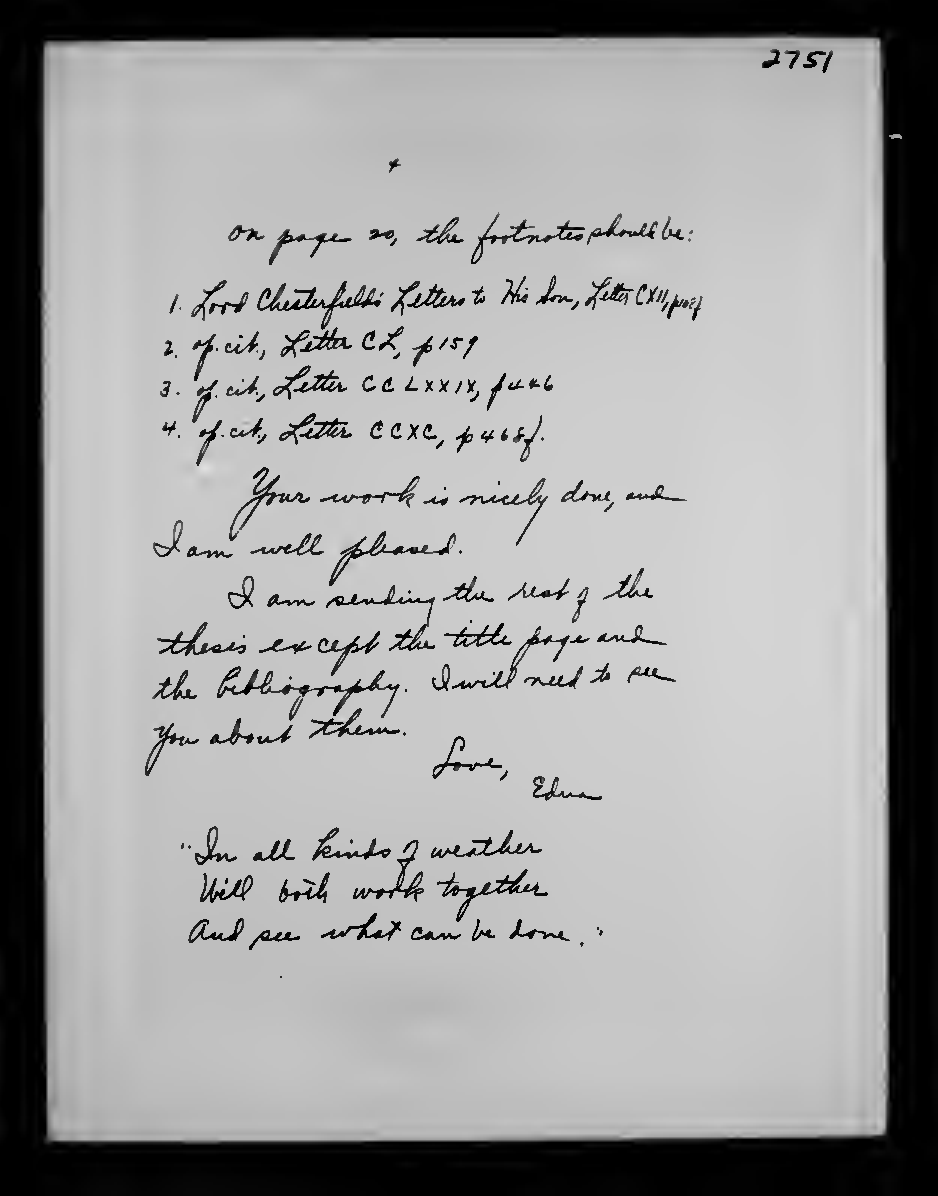 2751
4
On page 20, the footnotes should be:
1. Lord Chesterfield's Letters to His Son, Letter CXII, p108f
2. op. cit., Letter CL, p159
3. op. cit., Letter CCLXXIX, p446
4. op. cit., Letter CCXC, p468f.
Your work is nicely done, and
I am well pleased.
I am sending the rest of the
thesis except the title page and
the bibliography. I will need to see
you about them.
Love,
Edna
"In all kinds of weather
We'll both work together
And see what can be done."